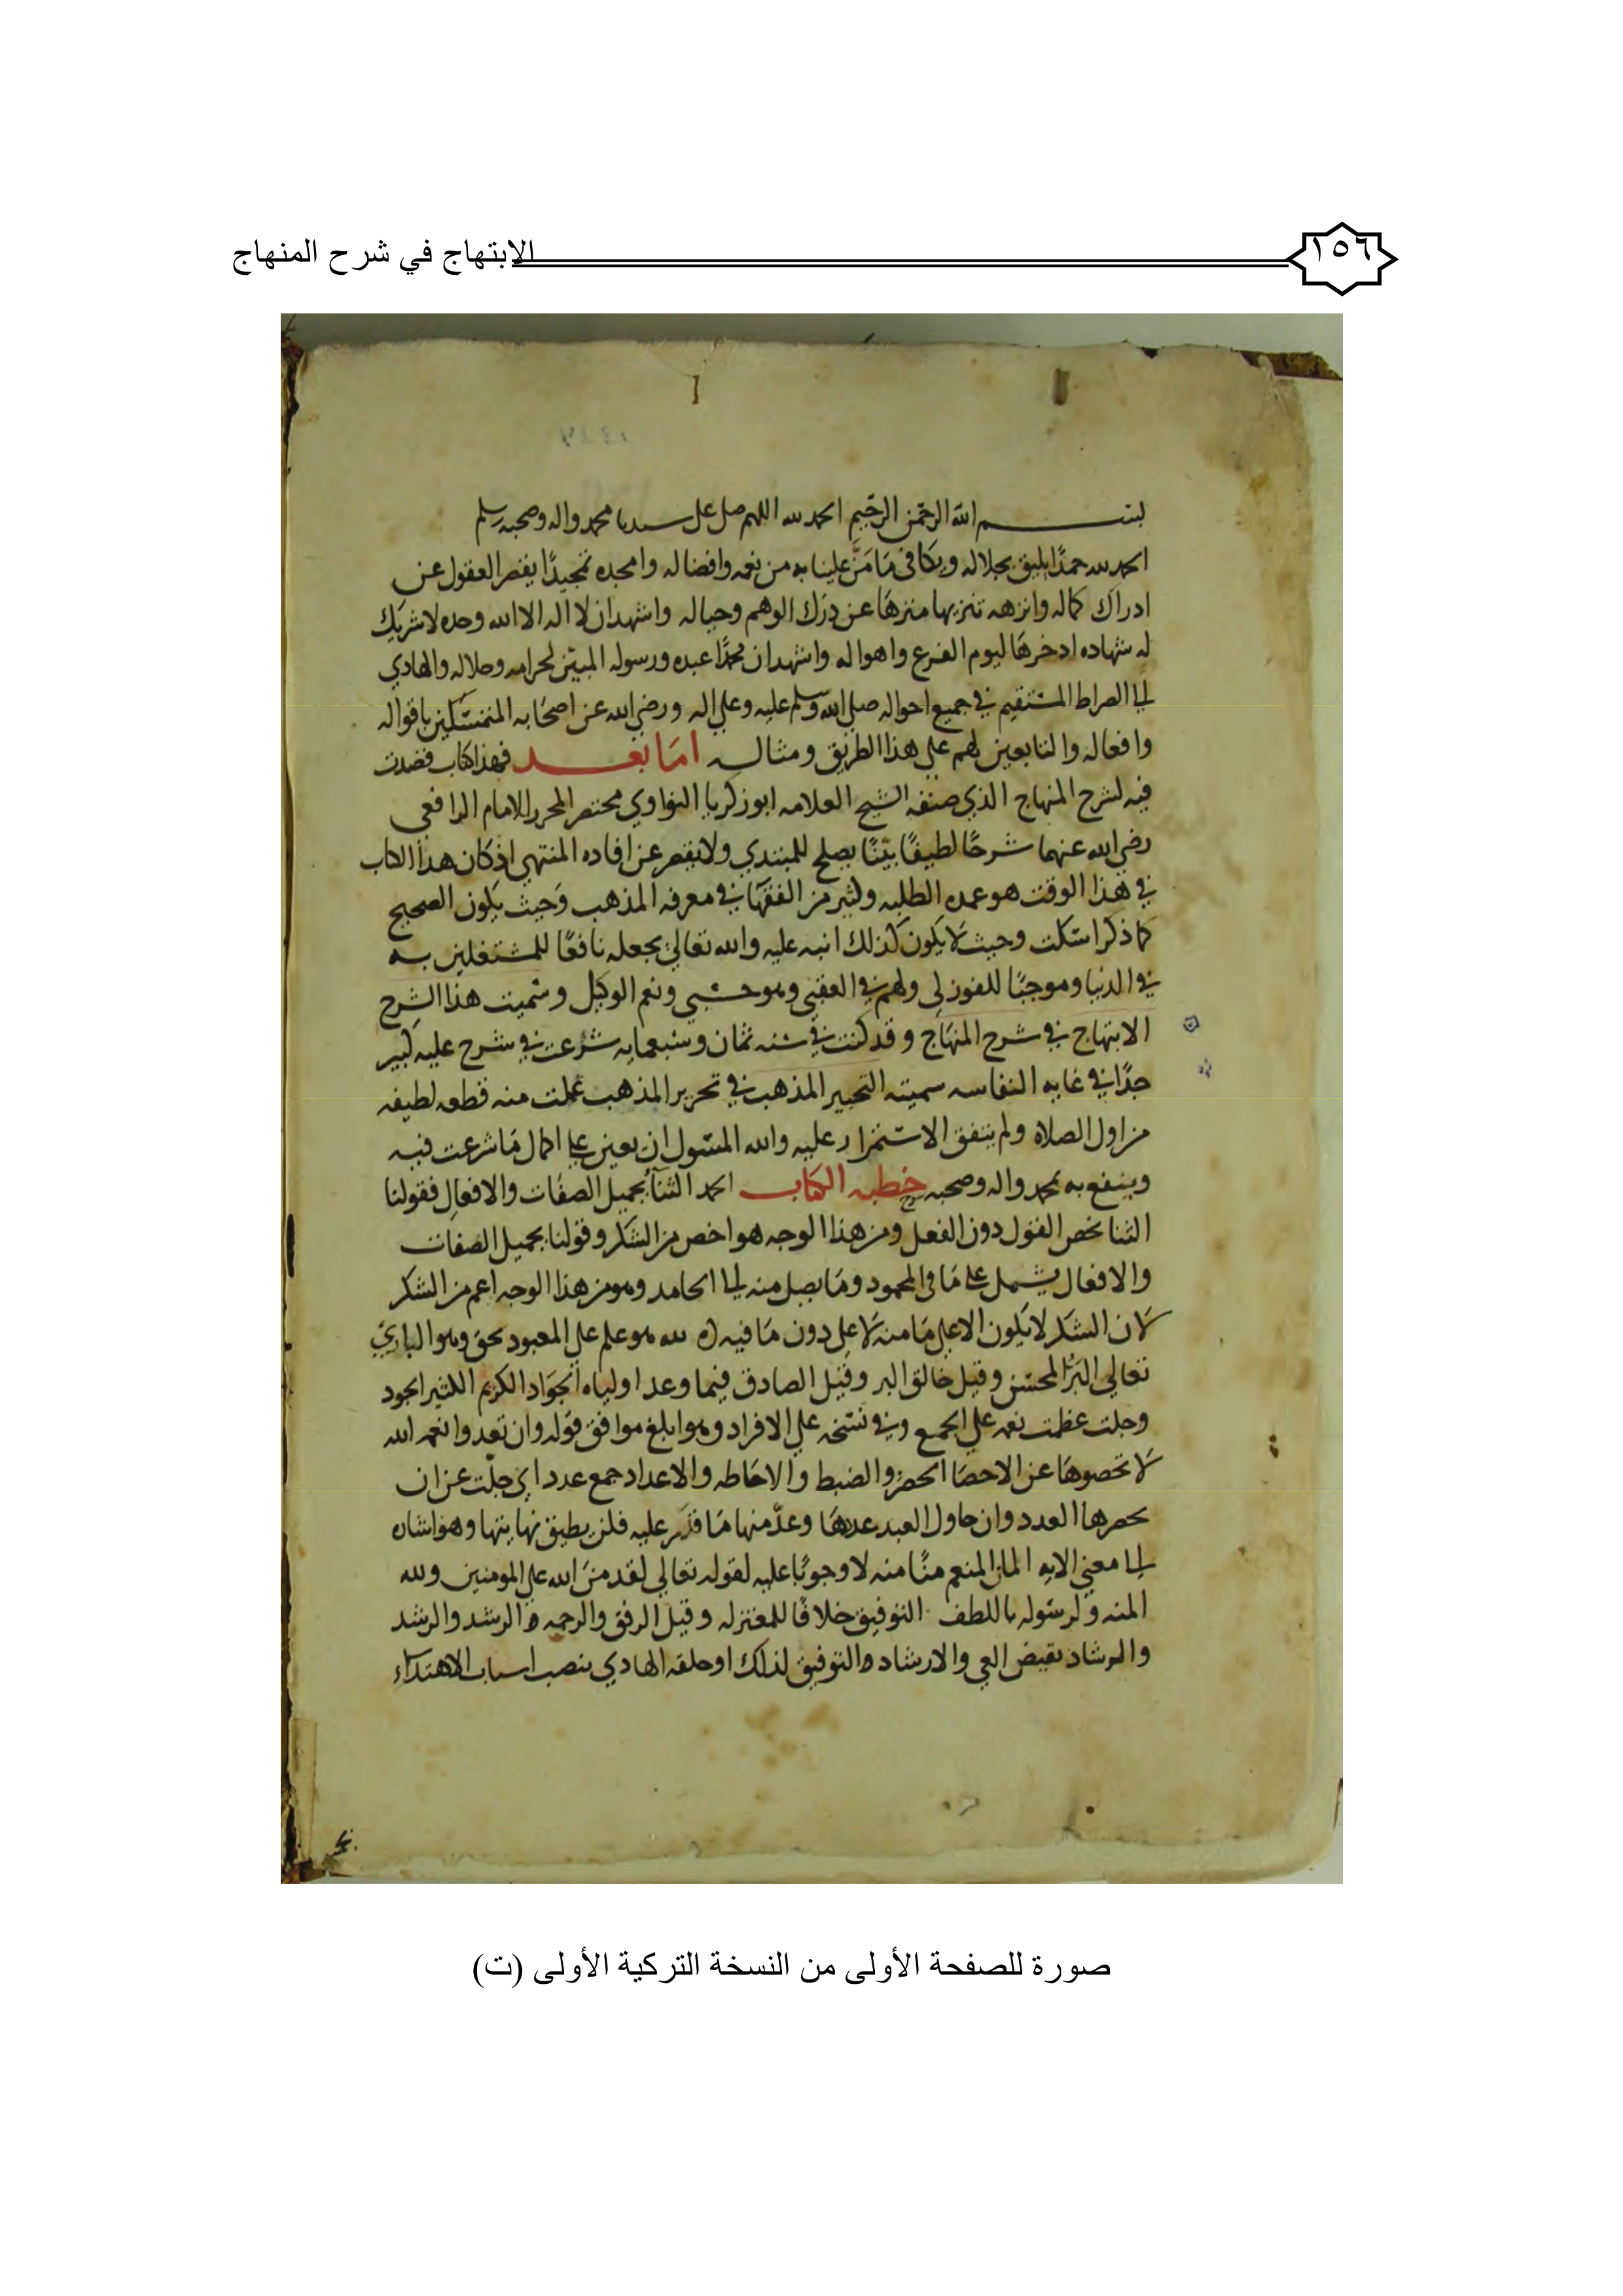 ١٥٦
الابتهاج في شرح المنهاج
بسم الله الرحمن الرحيم الحمد لله اللهم صل على سيدنا محمد واله وصحبه وسلم
الحمد لله حمدًا يليق بجلاله ويكافى مَا مَنَّ علينا به من نعمه وافضاله وامجده تمجيدًا يقصر العقول عن
ادراك كماله وانزهه تنزيها منزهَا عن دَرَك الوهم وخياله واشهد ان لا اله الا الله وحده لا شريك
له شهاده ادخرهَا ليوم الفزع واهواله واشهد ان محمدًا عبده ورسوله المبيّن لحرامه وحلاله والهادي
الى الصراط المستقيم في جميع احواله صلى الله وسلم عليه وعلى اله ورضي الله عن اصحَابه المتمسّكين باقواله
وافعاله والتابعين لهم على هذا الطريق ومثاله امَا بعد فهذا كتاب قصدت
فيه لشرح المنهاج الذي صنفه الشيخ العلامه ابو زكريا النواوي مختصر المحرر للامام الرافعي
رضي الله عنهما شرحًا لطيفًا بيّنًا يصلح للمبتدي ولا يقصر عن افاده المنتهي اذ كان هذا الكتاب
في هذا الوقت هو عمده الطلبه وكثير من الفقهَا في معرفه المذهب وَحيث يكون الصحيح
كما ذكر اسَكت وحيث لَا يكون كذلك انبه عليه والله تعالى يجعله نافعًا للمشتغلين به
في الدنيا وموجبًا للفوز لي ولهم في العقبى وهو حسبي ونعم الوكيل وسميت هذا الشرح
الابتهاج في شرح المنهَاج وقد كنت في سَنه ثمَان وسَبعمايه شَرُعت في شرح عليه كبير
جدًا في غايه النفاسه سميته التحبير المذهب في تحرير المذهب عملت منه قطعه لطيفه
من اول الصلاه ولم يتفق الاستمرار عليه والله المسَول ان يعين على اكمال مَا شرعت فيه
وينفع به بمحمد واله وصحبه خطبه الكتاب الحمد الثنَا بجميل الصفَات والافعال فقولنا
الثنا يخص القول دون الفعل ومن هذا الوجه هو اخص من الشكر وقولنا بجميل الصفات
والافعال يشمل على مَا في المحمود ومَا يصل منه الى الحامد وهو من هذا الوجه اعم من الشكر
لَان الشكر لا يكون الا على مَا منه لَا على دون مَا فيه لله هو علم على المعبود بحق وهو الباري
تعالى البَرُّ المحسن وقيل خالق البر وقيل الصادق فيما وعد اولياه الجوَاد الكريم الكثير الجود
وجلت عظمت نعمه على الجمع وفي نسَخه على الافراد وهو ابلغ موافق قوله وان تعدوا نعمه الله
لَا تحصوهَا عن الاحصَا الحصر والضبط والاحَاطه والاعداد جمع عدد اي جلّت عن ان
يحصرها العدد وان حاول العبد عدهَا وعدّ منها مَا قدَر عليه فلن يطيق نهايتها وهو اشاره
الى معنى الايه المان المنعم منًا منه لا وجوبًا عليه لقوله تعالى لقد منّ الله على المومنين ولله
المنه ولرسَوله باللطف التوفيق خلافًا للمعتزله وقيل الرفق والرحمه والرشد والرشد
والرشاد نقيض الغي والارشاد التوفيق لذلك او خلقه الهادي بنصب اسباب الاهتدَاء
صورة للصفحة الأولى من النسخة التركية الأولى (ت)